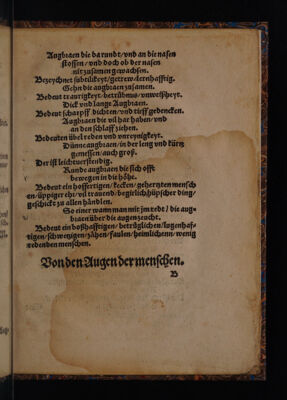 Augbraen die da rundt/vnd an die nasen
stossen/vnd doch ob der nasen
nit zusamen gewachsen.
Bezeychnet subtilikeyt/getrew/lernhafftig.
Gehn die augbraen zusamen.
Bedeut traurigkeyt/betrübnus/vnweißheyt.
Dick vnd lange Augbraen.
Bedeut scharpff dichten/vnd tieff gedencken.
Augbraen die vil har haben/vnd
an den schlaff ziehen.
Bedeuten übel reden vnd vnreynigkeyt.
Dünne augbraen/in der leng vnd kürtz
gemessen/auch groß.
Der ist leichtuerstendig.
Runde augbraen die sich offt
bewegen in die höhe.
Bedeut ein hoffertigen/kecken/gehertzten mensch
en/üppiger ehr/vil trauend/begirlich hüpscher ding/
geschickt zu allen händeln.
So einer wann man mit jm redt/die aug/
braen über die augen zeucht.
Bedeut ein boßhafftigen/betrüglichen/lugenhaf/
tigen/schweigen/zähen/faulen/heimlichenn/wenig
redenden menschen.
Von den Augen der menschen.
B